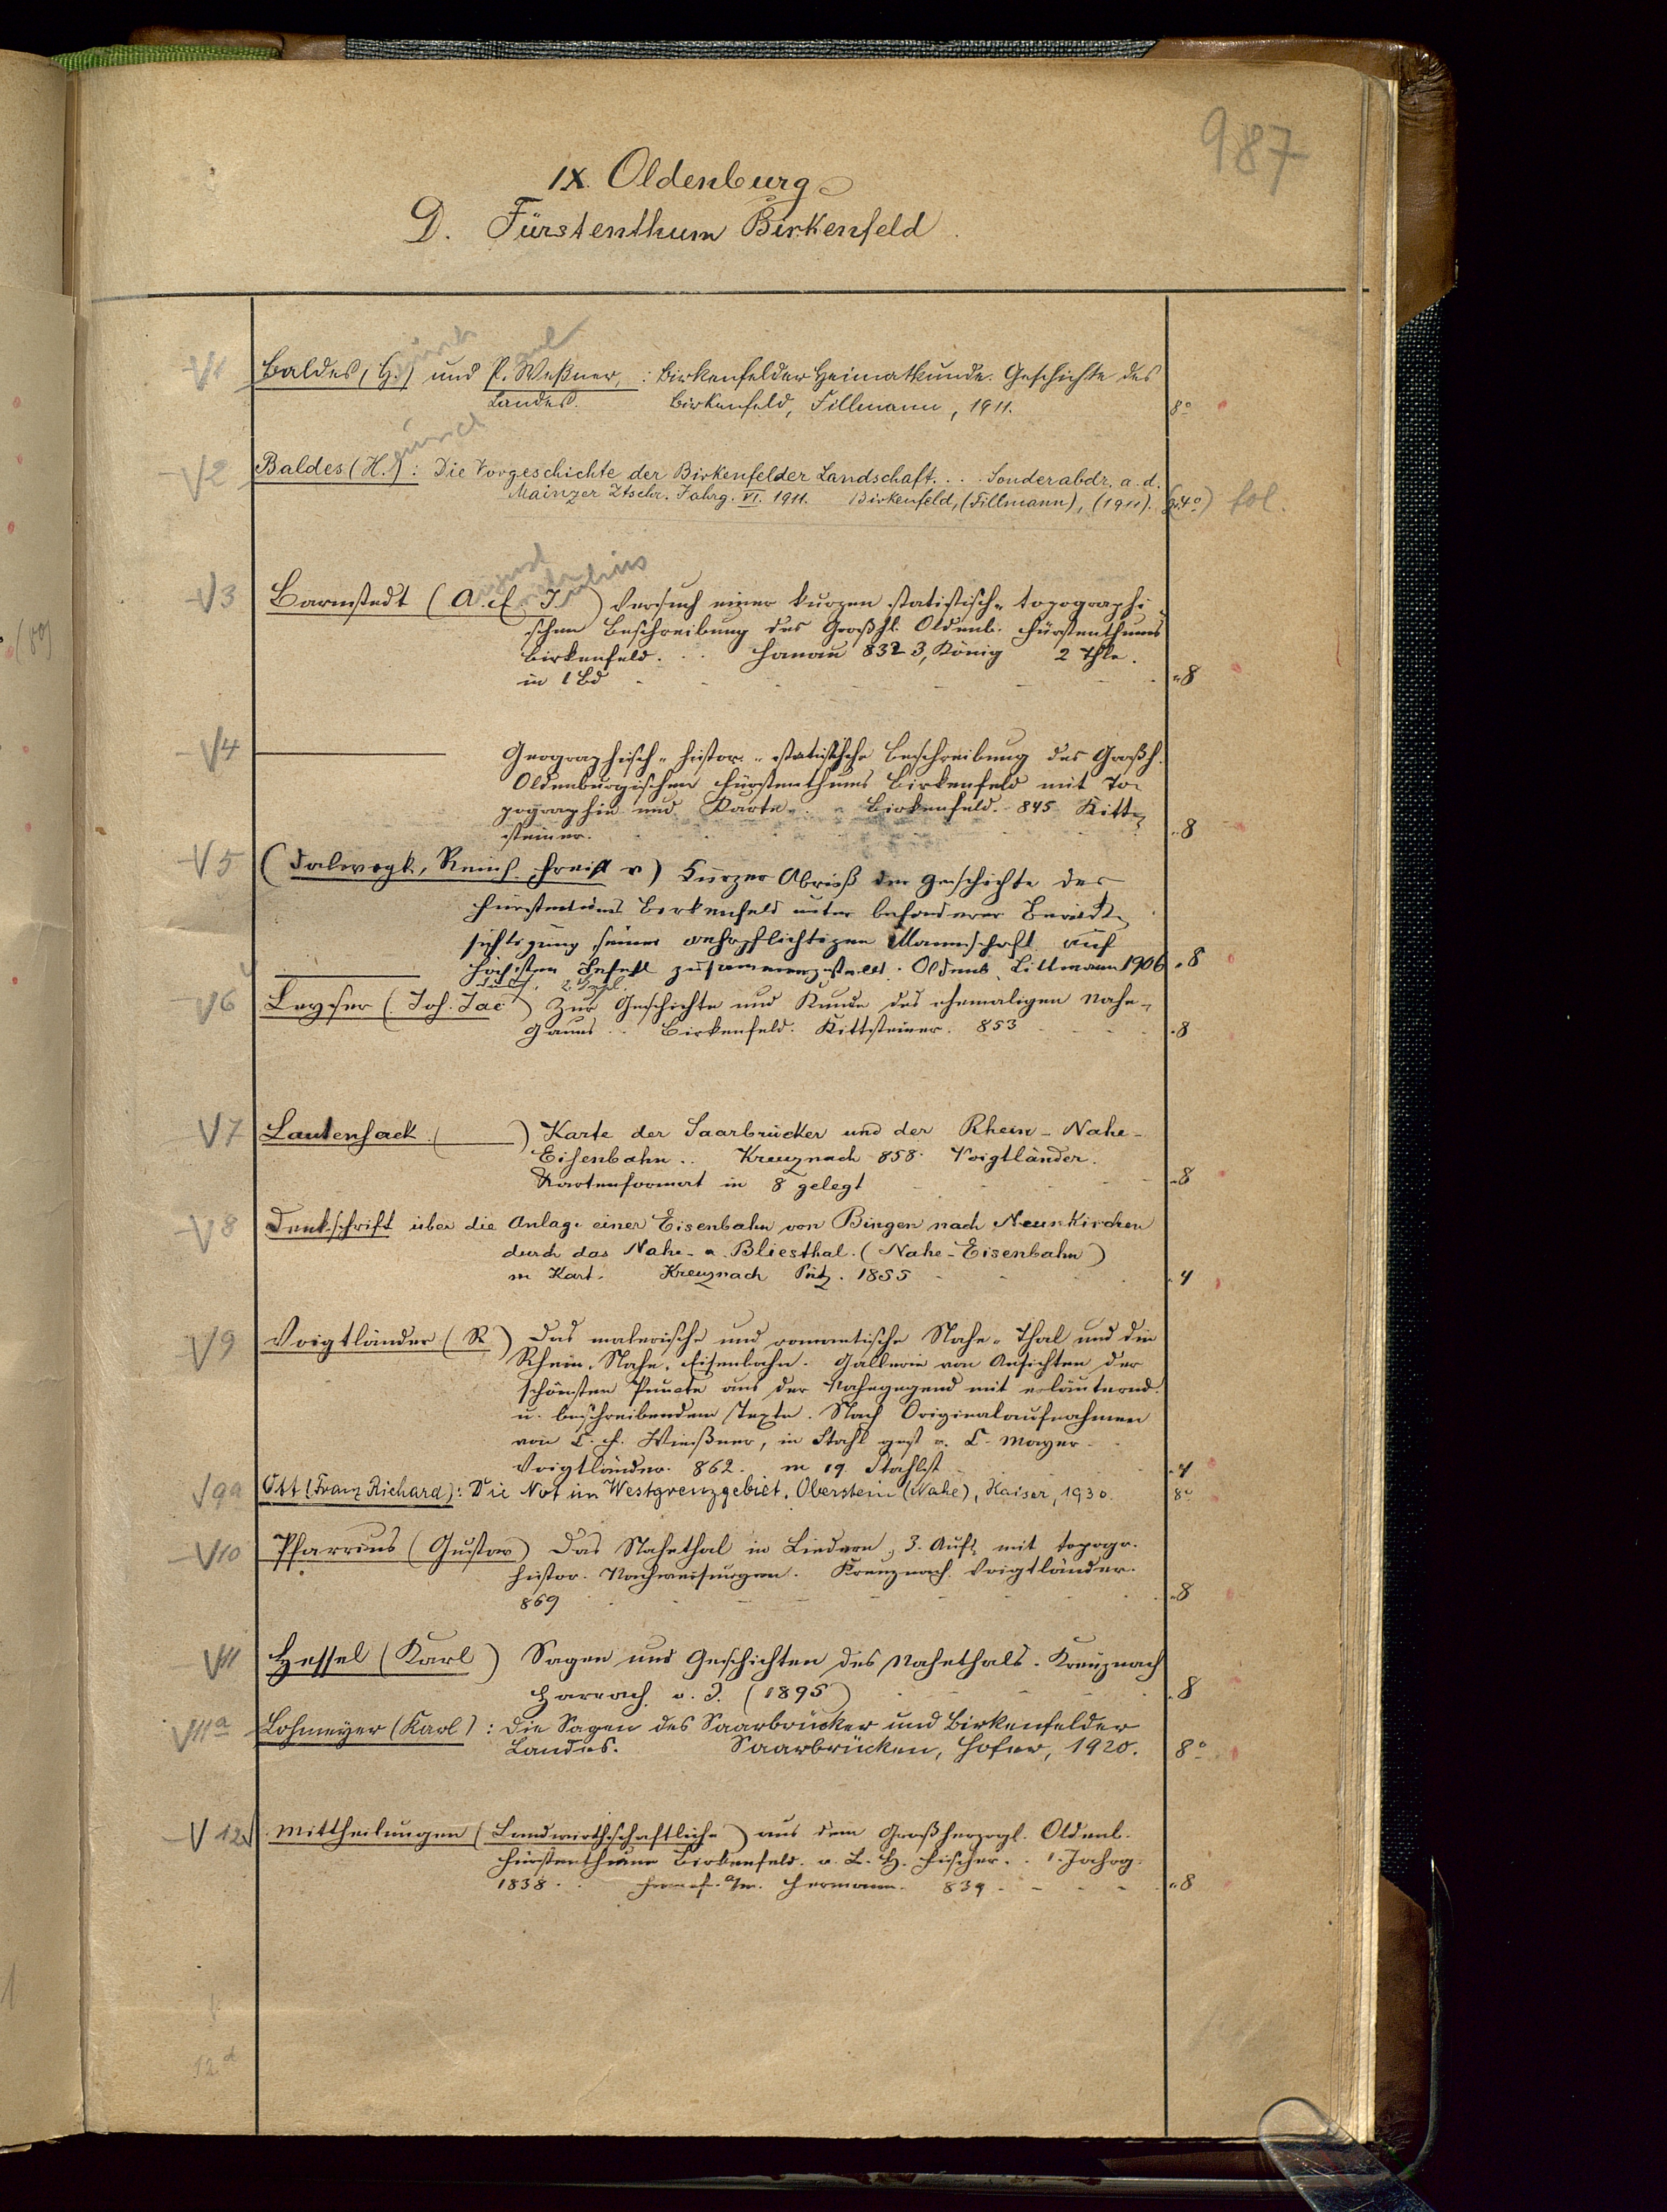 987
IX. Oldenburg
D. Fürstenthum Birkenfeld.
V1 Baldes, (H.) und P. Weßner, : Birkenfelder Heimatkunde. Geschichte des
Landes. Birkenfeld, Fillmann, 1911. 8°
V2 Baldes (H.) : Die Vorgeschichte der Birkenfelder Landschaft. . . Sonderabdr. a. d.
Mainzer Ztschr. Jahrg. VI. 1911. Birkenfeld, (Fillmann), (1911). (gr. 4°) fol.
V3 Barnstedt (A. E. J.) Versuch einer kurzen statistisch-topographi-
schen Beschreibung des Großhl. Oldenb. Fürstenthums
Birkenfeld. . . Hanau 832 3, König 2 Thle.
in 1 Bd 8
V4 ——— Geographisch-histor.-statistische Beschreibung des Großh.
Oldenburgischen Fürstenthums Birkenfeld mit To-
pographie und Karte. . Birkenfeld. 845 Kitt-
steiner. 8
V5 (Dalwigk, Reinh. Freih v) Kurzer Abriß der Geschichte des
Fürstentums Birkenfeld unter besonderer Berück-
sichtigung seiner wehrpflichtigen Mannschaft auf
Höchsten Befehl zusammengestellt. Oldenb. Littmann 1906 8
V6 Leyser (Joh. Jac) Zur Geschichte und Kunde des ehemaligen Nahe-
gaues . . Birkenfeld. Kittsteiner. 853 8
V7 Lautensack (———) Karte der Saarbrücker und der Rhein-Nahe-
Eisenbahn . . Kreuznach 858. Voigtländer.
Kartenformat in 8 gelegt 8
V8 Denkschrift über die Anlage einer Eisenbahn von Bingen nach Neunkirchen
durch das Nahe- u. Bliesthal. (Nahe-Eisenbahn)
m Kart. Kreuznach 1855 4
V9 Voigtländer (R) Das malerische und romantische Nahe-Thal und die
Rhein-Nahe-Eisenbahn. Gallerie von Ansichten der
schönsten Puncte aus der Nahegegend mit erläuternd.
u. beschreibendem Texte. Nach Originalaufnahmen
von C. F. Wießner, in Stahl gest v. C. Mayer.
Voigtländer. 862. m 19 Stahlst 4
V9a Ott (Franz Richard) : Die Not im Westgrenzgebiet. Oberstein (Nahe), Kaiser, 1930. 8°
V10 Pfarrius (Gustav) Das Nahethal in Liedern, 3. Aufl. mit topogr.
histor. Nachweisungen. Kreuznach. Voigtländer.
869 8
V11 Hessel (Karl) Sagen und Geschichten des Nahethals. Kreuznach
Harrach o. J. (1895) 8
V11a Lohmeyer (Karl) : Die Sagen des Saarbrücker und Birkenfelder
Landes. Saarbrücken, Hofer, 1920. 8°
V12 Mittheilungen (Landwirthschaftliche) aus dem Großherzogl. Oldenb.
Fürstenthume Birkenfeld. v. L. H. Fischer. . 1. Jahrg.
1838. . Hermann. 839 8
12d